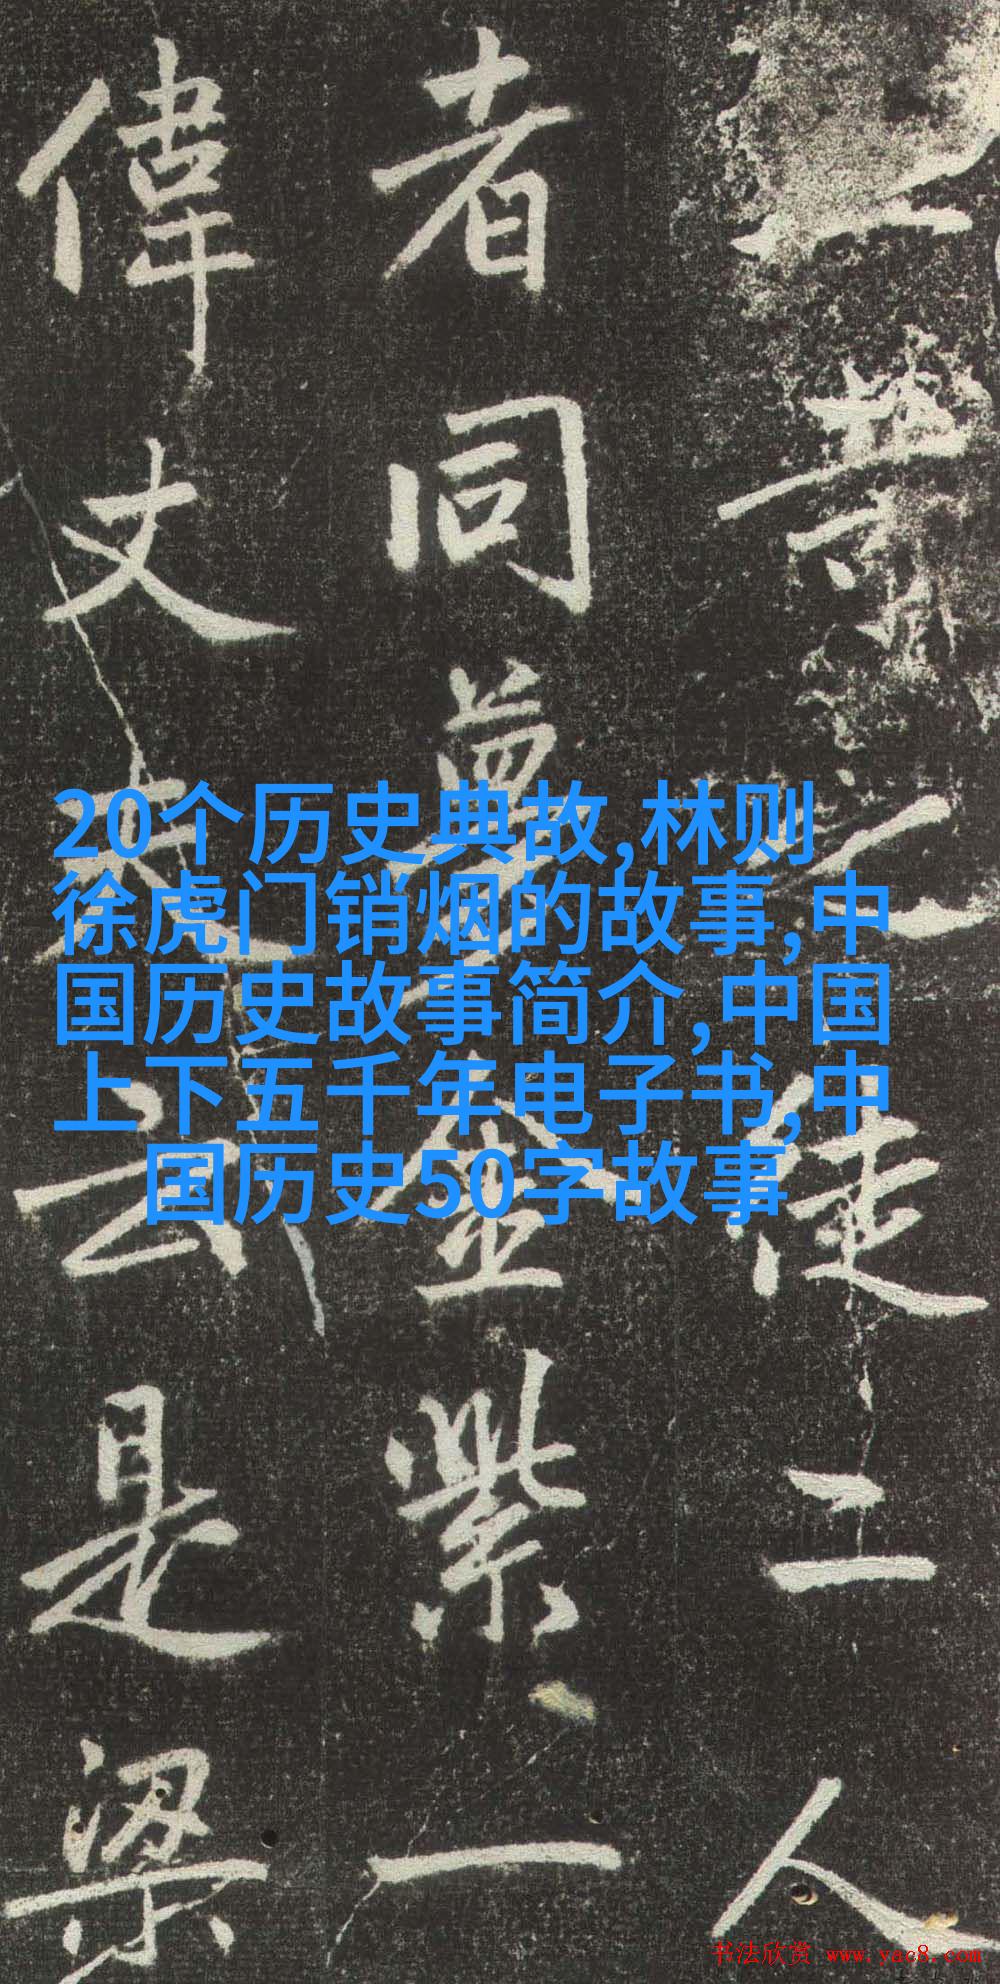 徒二人
者同金紫一
偉丈夫云是梁
20个历史典故,林则
徐虎门销烟的故事,中
国历史故事简介,中国
上下五千年电子书,中
国历史50字故事
书法欣赏 www.yac8.com